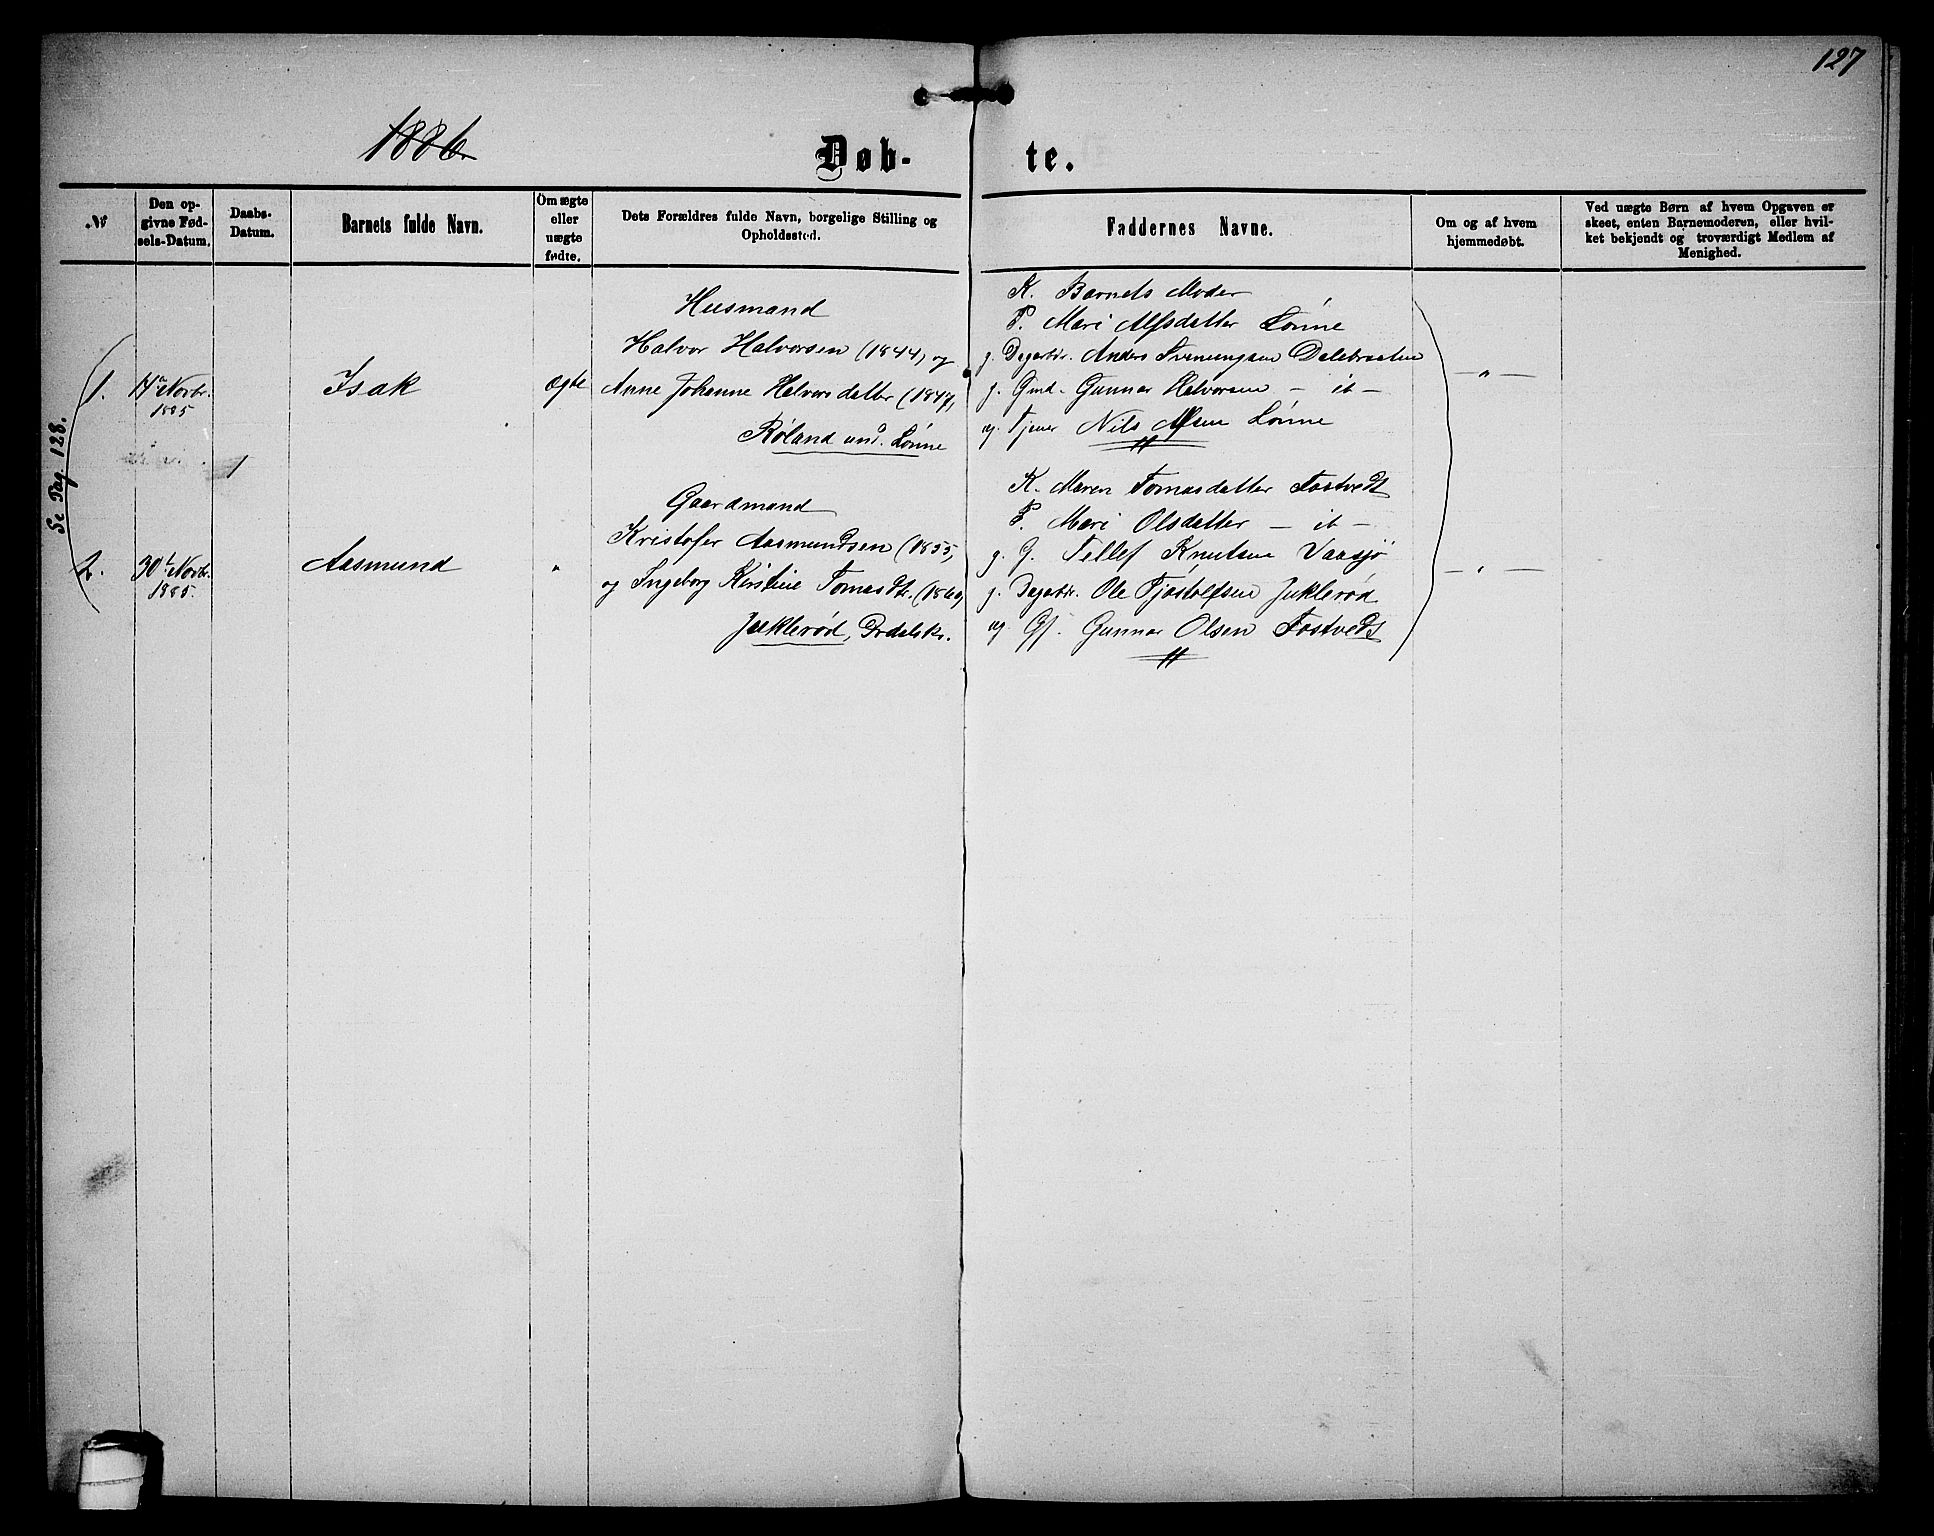 127
1886
Døb- te.
№
Den opgivne Fødsels-Datum.
Daabs-Datum.
Barnets fulde Navn.
Om ægte eller uægte fødte.
Dets Forældres fulde Navn, borgelige Stilling og Opholdssted.
Faddernes Navne.
Om og af hvem hjemmedøbt.
Ved uægte Børn af hvem Opgaven er skeet, enten Barnemoderen, eller hvilket bekjendt og troværdigt Medlem af Menighed.
Se Pag. 128.
1.
Novbr.
1885
Isak
ægte
Husmand
Halvor Halvorsen (1844) og
Anne Johanne Halvorsdatter (1847,
Røland und. Lønne
K. Barnets Moder
P. Mari Alfsdatter Lønne
g. Anders Dalebraaten
g. Gmd. Gunnar Halvorsen — it —
ug. Tjener Nils Alfsen Lønne
— " —
1
2.
30te Novbr.
1885.
Aasmund
"
Gaardmand
Kristofer Aasmundsen (1855,
og Ingeborg Kirstine Tomasdtr. (1860,
Juklerød, Drdalskr.
K. Maren Tomasdatter Tostvedt
P. Mari Olsdatter — it —
g. G. Tellef Knutsen Vaasjø
g. Ole Tjostolfsen Juklerød
ug. Gf. Gunnar Olsen Tostvedt
— " —